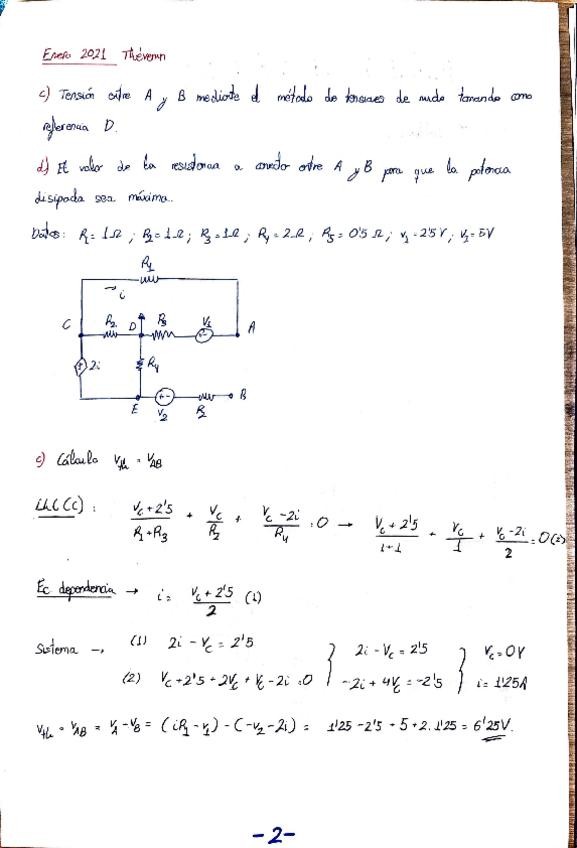 Enero 2021 Thévenin
c) Tensión entre A y B mediante el método de tensiones de nudo tomando como
referencia D.
d) El valor de la resistencia a conectar entre A y B para que la potencia
disipada sea máxima.
Datos: R₁= 1Ω ; R₂= 1Ω ; R₃= 1Ω ; R₄= 2Ω ; R₅= 0'5 Ω ; V₁= 2'5V ; V₂= 5V
R₁
→ i
C R₂ D R₃ V₁ A
2i R₄
E V₂ R₂ B
c) Cálculo Vth = VAB
LKC(C): (Vc+2'5)/(R₁+R₃) + Vc/R₂ + (Vc-2i)/R₄ = 0 → (Vc+2'5)/(1+1) + Vc/1 + (Vc-2i)/2 = 0 (2)
Ec dependencia → i = (Vc+2'5)/2 (1)
Sistema → (1) 2i - Vc = 2'5 } 2i - Vc = 2'5 } Vc = 0V
(2) Vc+2'5+2Vc+Vc-2i=0 } -2i+4Vc=-2'5 } i= 1'25A
Vth = VAB = VA-VB = (iR₁-V₁)-(-V₂-2i) = 1'25-2'5+5+2·1'25 = 6'25V.
-2-